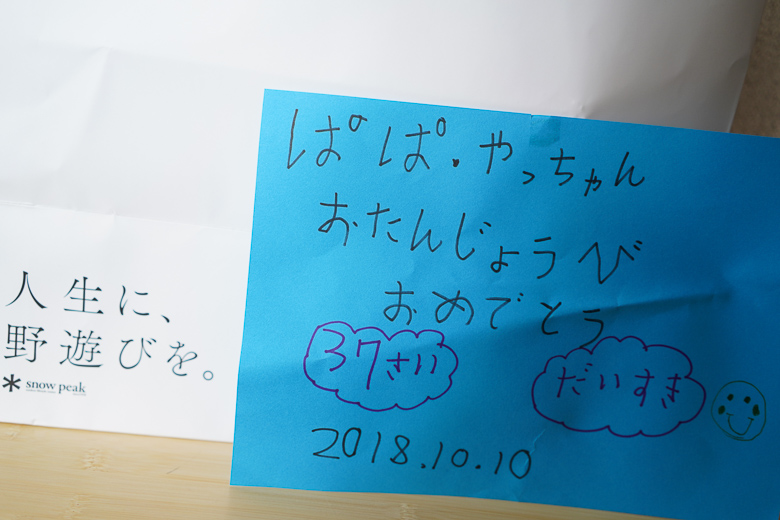 ぱぱ・やっちゃん
おたんじょうび
おめでとう
37さい
だいすき
2018.10.10
人生に、
野遊びを。
snow peak